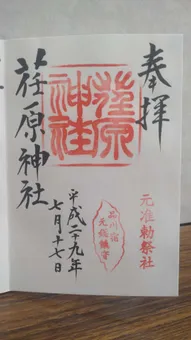 奉拝
元准勅祭社
荏原
神社
品川宿
元板鎮守
平成二十九年
七月十七日
荏原神社